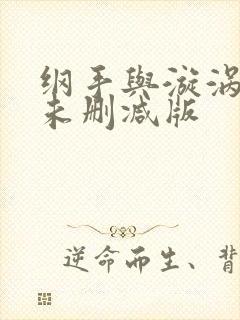 纲手與漩涡
未删减版
逆命而生、背